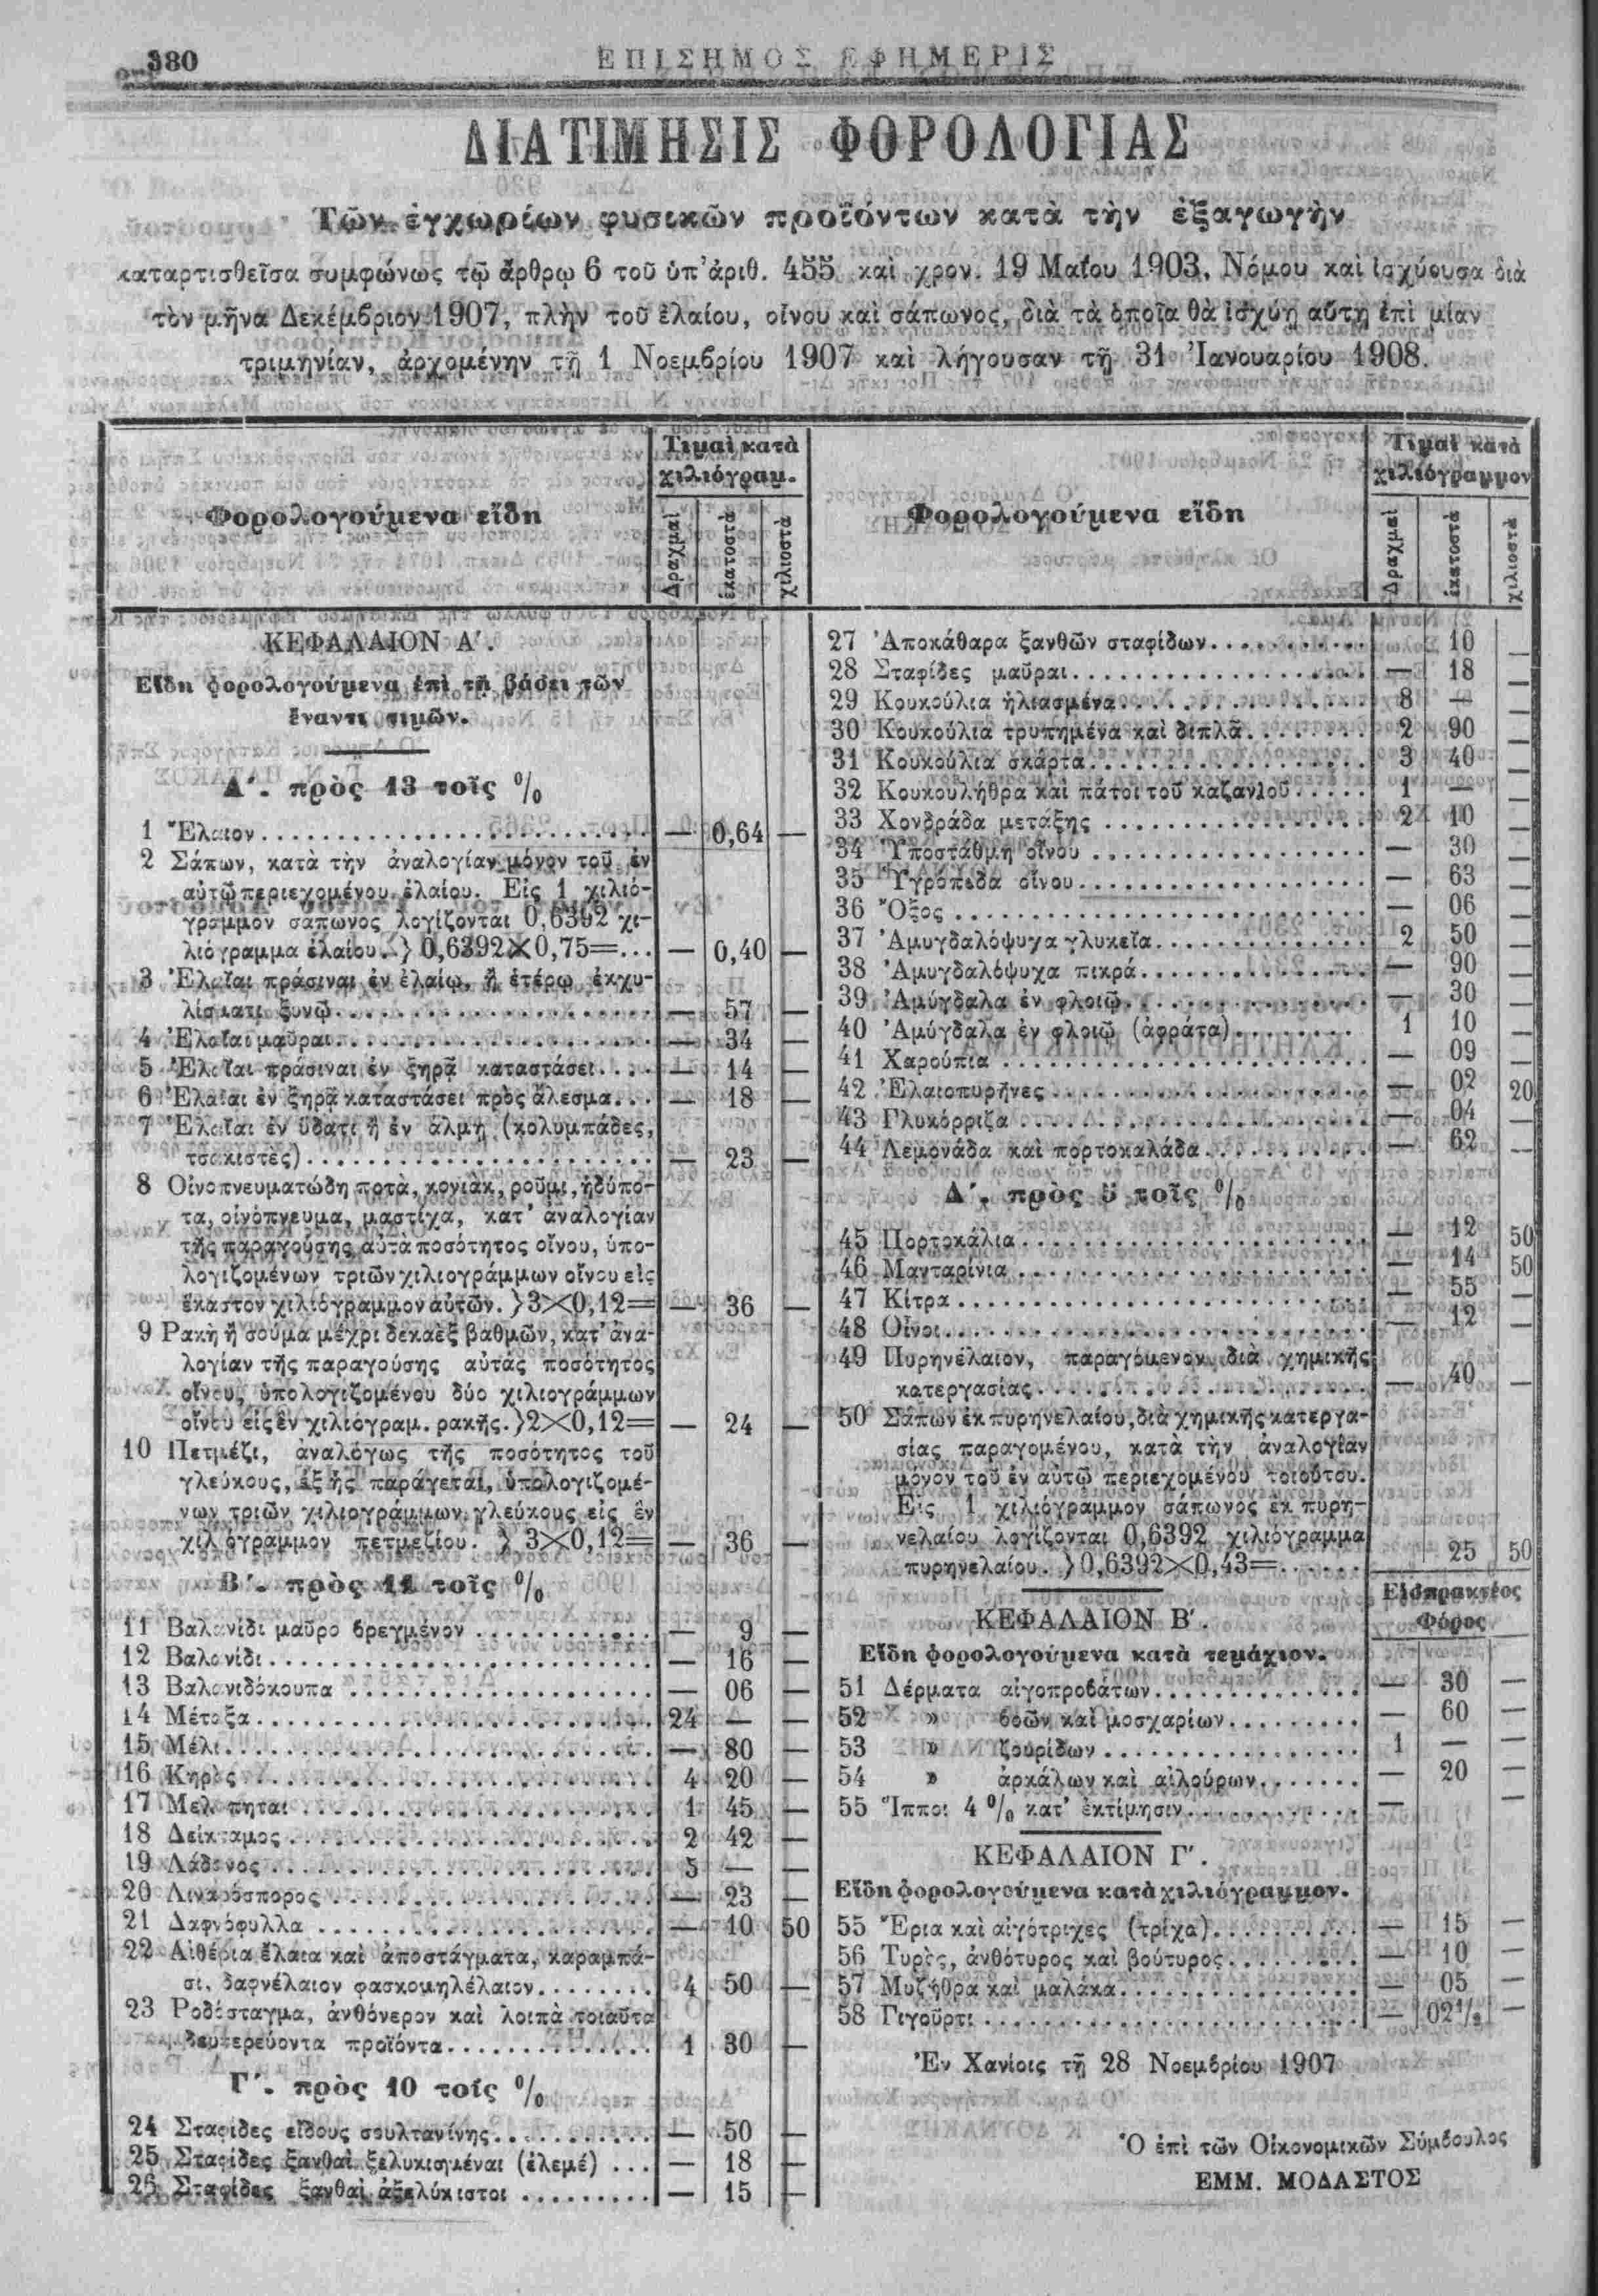 380
ΕΠΙΣΗΜΟΣ ΕΦΗΜΕΡΙΣ
ΔΙΑΤΙΜΗΣΙΣ ΦΟΡΟΛΟΓΙΑΣ
Τῶν ἐγχωρίων φυσικῶν προϊόντων κατὰ τὴν ἐξαγωγὴν
καταρτισθεῖσα συμφώνως τῷ ἄρθρῳ 6 τοῦ ὑπ' ἀριθ. 455 καὶ χρον. 19 Μαΐου 1903, Νόμου καὶ ἰσχύουσα διὰ
τὸν μῆνα Δεκέμβριον 1907, πλὴν τοῦ ἐλαίου, οἴνου καὶ σάπωνος, διὰ τὰ ὁποῖα θὰ ἰσχύῃ αὕτη ἐπὶ μίαν
τριμηνίαν, ἀρχομένην τῇ 1 Νοεμβρίου 1907 καὶ λήγουσαν τῇ 31 Ἰανουαρίου 1908.
Φορολογούμενα εἴδη
Τιμαὶ κατὰ
χιλιόγραμ.
Δραχμαὶ
ἑκατοστὰ
χιλιοστὰ
ΚΕΦΑΛΑΙΟΝ Α'.
Εἴδη φορολογούμενα ἐπὶ τῇ βάσει τῶν
ἔναντι τιμῶν.
Α'. πρὸς 13 τοῖς %
1 Ἔλαιον — 0,64 —
2 Σάπων, κατὰ τὴν ἀναλογίαν μόνον τοῦ ἐν
αὐτῷ περιεχομένου ἐλαίου. Εἰς 1 χιλιό-
γραμμον σάπωνος λογίζονται 0,6392 χι-
λιόγραμμα ἐλαίου. } 0,6392×0,75=... — 0,40 —
3 Ἐλαῖαι πράσιναι ἐν ἐλαίῳ, ἢ ἑτέρῳ ἐκχυ-
λίσματι ξυνῷ — 57 —
4 Ἐλαῖαι μαῦραι — 34 —
5 Ἐλαῖαι πράσιναι ἐν ξηρᾷ καταστάσει — 14 —
6 Ἐλαῖαι ἐν ξηρᾷ καταστάσει πρὸς ἄλεσμα... — 18 —
7 Ἐλαῖαι ἐν ὕδατι ἢ ἐν ἅλμῃ (κολυμπάδες,
τσακιστὲς) — 23 —
8 Οἰνοπνευματώδη ποτὰ, κονιὰκ, ροῦμι, ἡδύπο-
τα, οἰνόπνευμα, μαστίχα, κατ' ἀναλογίαν
τῆς παραγούσης αὐτὰ ποσότητος οἴνου, ὑπο-
λογιζομένων τριῶν χιλιογράμμων οἴνου εἰς
ἕκαστον χιλιόγραμμον αὐτῶν. } 3×0,12= — 36 —
9 Ρακὴ ἢ σοῦμα μέχρι δεκαὲξ βαθμῶν, κατ' ἀνα-
λογίαν τῆς παραγούσης αὐτὰς ποσότητος
οἴνου, ὑπολογιζομένου δύο χιλιογράμμων
οἴνου εἰς ἓν χιλιόγραμ. ρακῆς. } 2×0,12= — 24 —
10 Πετμέζι, ἀναλόγως τῆς ποσότητος τοῦ
γλεύκους, ἐξ ἧς παράγεται, ὑπολογιζομέ-
νων τριῶν χιλιογράμμων γλεύκους εἰς ἓν
χιλιόγραμμον πετμεζίου. } 3×0,12= — 36 —
Β'. πρὸς 11 τοῖς %
11 Βαλανίδι μαῦρο βρεγμένον — 9 —
12 Βαλανίδι — 16 —
13 Βαλανιδόκουπα — 06 —
14 Μέταξα 24 — —
15 Μέλι — 80 —
16 Κηρὸς 4 20 —
17 Μελόπηται 1 45 —
18 Δείκταμος 2 42 —
19 Λάδανος 5 — —
20 Λιναρόσπορος — 23 —
21 Δαφνόφυλλα — 10 50
22 Αἰθέρια ἔλαια καὶ ἀποστάγματα, καραμπά-
σι, δαφνέλαιον φασκομηλέλαιον 4 50 —
23 Ροδόσταγμα, ἀνθόνερον καὶ λοιπὰ τοιαῦτα
δευτερεύοντα προϊόντα 1 30 —
Γ'. πρὸς 10 τοῖς %
24 Σταφίδες εἴδους σουλτανίνης — 50 —
25 Σταφίδες ξανθαὶ ξελυκισμέναι (ἐλεμέ) ... — 18 —
26 Σταφίδες ξανθαὶ ἀξελύκιστοι — 15 —
Φορολογούμενα εἴδη
Τιμαὶ κατὰ
χιλιόγραμμον
Δραχμαὶ
ἑκατοστὰ
χιλιοστὰ
27 Ἀποκάθαρα ξανθῶν σταφίδων — 10 —
28 Σταφίδες μαῦραι — 18 —
29 Κουκούλια ἡλιασμένα 8 — —
30 Κουκούλια τρυπημένα καὶ διπλᾶ 2 90 —
31 Κουκούλια σκάρτα 3 40 —
32 Κουκουλήθρα καὶ πάτοι τοῦ καζανιοῦ 1 — —
33 Χονδράδα μετάξης 2 10 —
34 Ὑποστάθμη οἴνου — 30 —
35 Ὑγρόπεδα οἴνου — 63 —
36 Ὄξος — 06 —
37 Ἀμυγδαλόψυχα γλυκεῖα 2 50 —
38 Ἀμυγδαλόψυχα πικρά — 90 —
39 Ἀμύγδαλα ἐν φλοιῷ — 30 —
40 Ἀμύγδαλα ἐν φλοιῷ (ἀφράτα) 1 10 —
41 Χαρούπια — 09 —
42 Ἐλαιοπυρῆνες — 02 20
43 Γλυκόρριζα — 04 —
44 Λεμονάδα καὶ πορτοκαλάδα — 62 —
Δ'. πρὸς 5 τοῖς %
45 Πορτοκάλια — 12 50
46 Μανταρίνια — 14 50
47 Κίτρα — 55 —
48 Οἶνοι — 12 —
49 Πυρηνέλαιον, παραγόμενον διὰ χημικῆς
κατεργασίας — 40 —
50 Σάπων ἐκ πυρηνελαίου, διὰ χημικῆς κατεργα-
σίας παραγομένου, κατὰ τὴν ἀναλογίαν
μόνον τοῦ ἐν αὐτῷ περιεχομένου τοιούτου.
Εἰς 1 χιλιόγραμμον σάπωνος ἐκ πυρη-
νελαίου λογίζονται 0,6392 χιλιόγραμμα
πυρηνελαίου. } 0,6392×0,43= 25 50
ΚΕΦΑΛΑΙΟΝ Β'.
Εἰσπρακτέος
Φόρος
Εἴδη φορολογούμενα κατὰ τεμάχιον.
51 Δέρματα αἰγοπροβάτων — 30 —
52 » βοῶν καὶ μοσχαρίων — 60 —
53 » ζουρίδων 1 — —
54 » ἀρκάλων καὶ αἰλούρων — 20 —
55 Ἵπποι 4 % κατ' ἐκτίμησιν — —
ΚΕΦΑΛΑΙΟΝ Γ'.
Εἴδη φορολογούμενα κατὰ χιλιόγραμμον.
55 Ἔρια καὶ αἰγότριχες (τρίχα) — 15 —
56 Τυρὸς, ἀνθότυρος καὶ βούτυρος — 10 —
57 Μυζήθρα καὶ μαλάκα — 05 —
58 Γιγοῦρτι — 02 1/2 —
Ἐν Χανίοις τῇ 28 Νοεμβρίου 1907
Ὁ ἐπὶ τῶν Οἰκονομικῶν Σύμβουλος
ΕΜΜ. ΜΟΔΑΣΤΟΣ